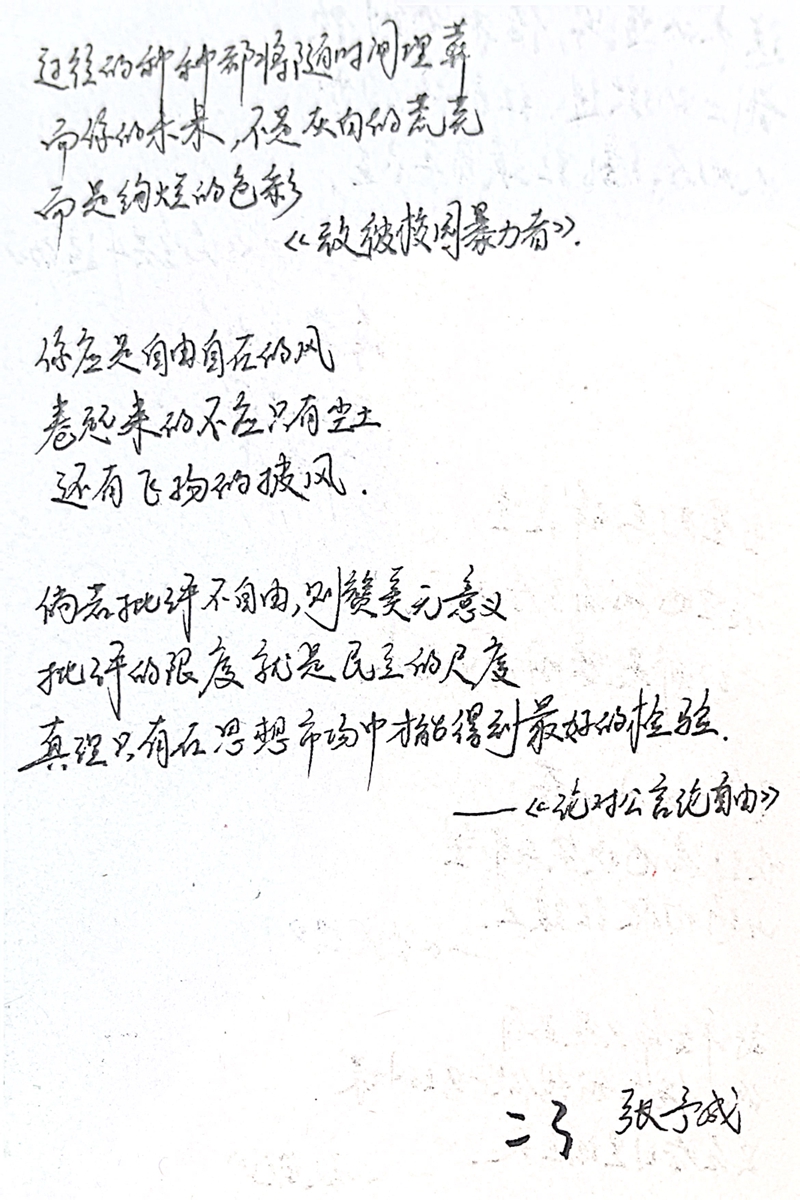 过往的种种都将随时间埋葬
而你的未来,不是灰白的荒芜
而是绚烂的色彩
《致被校园暴力者》.
你应是自由自在的风
卷起来的不应只有尘土
还有飞扬的披风.
倘若批评不自由,则赞美无意义
批评的限度就是民主的尺度
真理只有在思想市场中才能得到最好的检验.
——《论对公言论自由》
二号 张予成